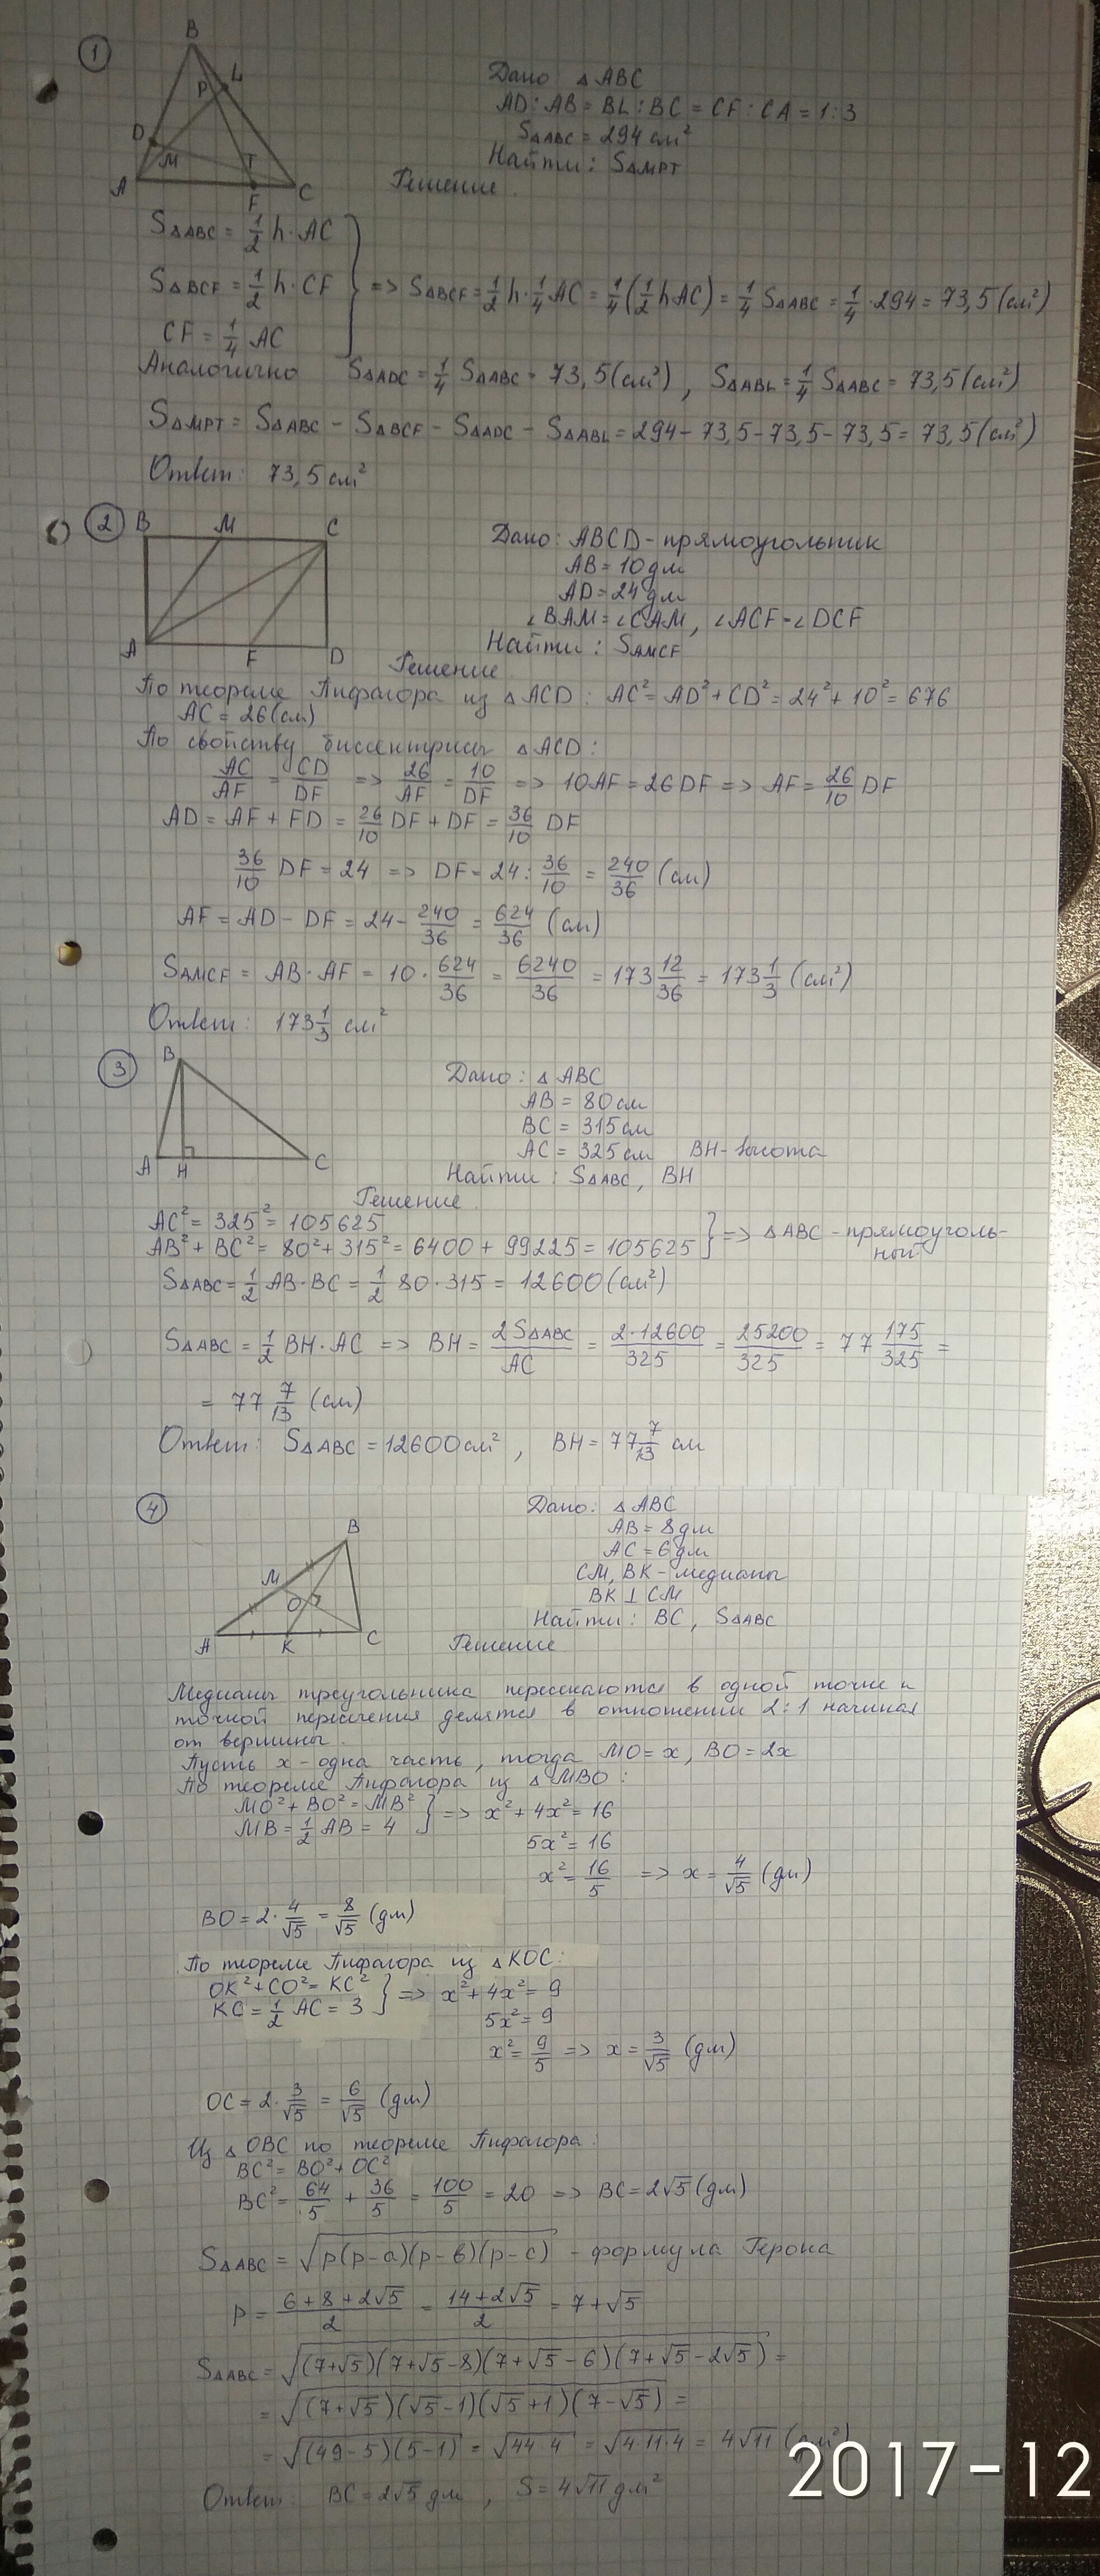 1
B
L
P
D
M
T
A
F
C
Дано △ABC
AD : AB = BL : BC = CF : CA = 1:3
S△ABC = 294 см²
Найти: S△MPT
Решение.
S△ABC = 1/2 h·AC
S△BCF = 1/2 h·CF
CF = 1/4 AC
} => S△BCF = 1/2 h·1/4 AC = 1/4 (1/2 h AC) = 1/4 S△ABC = 1/4 · 294 = 73,5 (см²)
Аналогично S△ADC = 1/4 S△ABC = 73,5 (см²), S△ABL = 1/4 S△ABC = 73,5 (см²)
S△MPT = S△ABC - S△BCF - S△ADC - S△ABL = 294 - 73,5 - 73,5 - 73,5 = 73,5 (см²)
Ответ: 73,5 см²
2
B M C
A F D
Дано: ABCD - прямоугольник
AB = 10 дм
AD = 24 дм
∠BAM = ∠CAM, ∠ACF = ∠DCF
Найти: SAMCF
Решение
По теореме Пифагора из △ACD: AC² = AD² + CD² = 24² + 10² = 676
AC = 26 (см)
По свойству биссектрисы △ACD:
AC/AF = CD/DF => 26/AF = 10/DF => 10AF = 26DF => AF = 26/10 DF
AD = AF + FD = 26/10 DF + DF = 36/10 DF
36/10 DF = 24 => DF = 24 : 36/10 = 240/36 (см)
AF = AD - DF = 24 - 240/36 = 624/36 (см)
SAMCF = AB · AF = 10 · 624/36 = 6240/36 = 173 12/36 = 173 1/3 (см²)
Ответ: 173 1/3 см²
3
B
A H C
Дано: △ABC
AB = 80 см
BC = 315 см
AC = 325 см BH - высота
Найти: S△ABC, BH
Решение.
AC² = 325² = 105625
AB² + BC² = 80² + 315² = 6400 + 99225 = 105625 } => △ABC - прямоуголь-
ный
S△ABC = 1/2 AB·BC = 1/2 80·315 = 12600 (см²)
S△ABC = 1/2 BH·AC => BH = 2S△ABC/AC = 2·12600/325 = 25200/325 = 77 175/325 =
= 77 7/13 (см)
Ответ: S△ABC = 12600 см², BH = 77 7/13 см
4
B
M
O
A K C
Дано: △ABC
AB = 8 дм
AC = 6 дм
CM, BK - медианы
BK ⊥ CM
Найти: BC, S△ABC
Решение
Медианы треугольника пересекаются в одной точке и
точкой пересечения делятся в отношении 2:1 начиная
от вершины.
Пусть x - одна часть, тогда MO = x, BO = 2x
По теореме Пифагора из △MBO:
MO² + BO² = MB²
MB = 1/2 AB = 4
} => x² + 4x² = 16
5x² = 16
x² = 16/5 => x = 4/√5 (дм)
BO = 2 · 4/√5 = 8/√5 (дм)
По теореме Пифагора из △KOC:
OK² + CO² = KC²
KC = 1/2 AC = 3
} => x² + 4x² = 9
5x² = 9
x² = 9/5 => x = 3/√5 (дм)
OC = 2 · 3/√5 = 6/√5 (дм)
Из △OBC по теореме Пифагора:
BC² = BO² + OC²
BC² = 64/5 + 36/5 = 100/5 = 20 => BC = 2√5 (дм)
S△ABC = √(p(p-a)(p-b)(p-c)) - формула Герона
P = (6+8+2√5)/2 = (14+2√5)/2 = 7+√5
S△ABC = √((7+√5)(7+√5-8)(7+√5-6)(7+√5-2√5)) =
= √((7+√5)(√5-1)(√5+1)(7-√5)) =
= √((49-5)(5-1)) = √(44·4) = √(4·11·4) = 4√11 (см²)
Ответ: BC = 2√5 дм, S = 4√11 дм²
2017-12